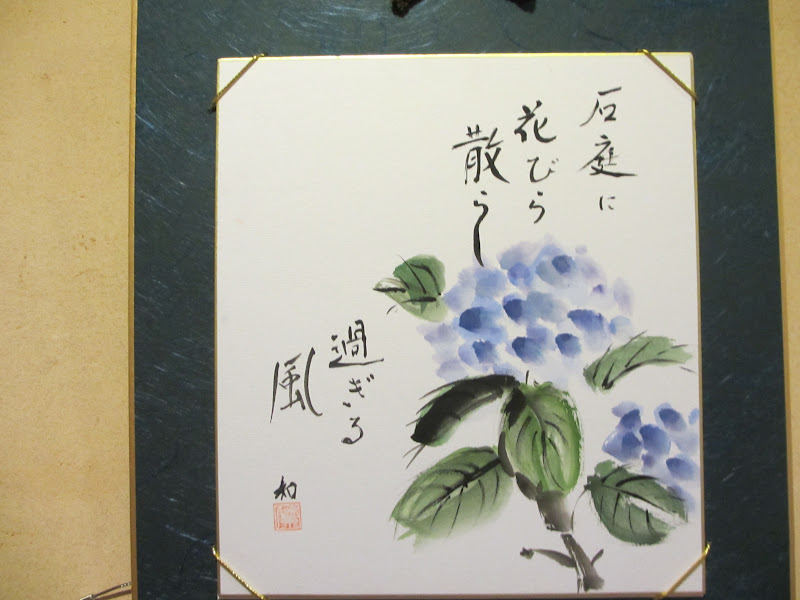 石庭に
花びら
散らし
過ぎる
風
和